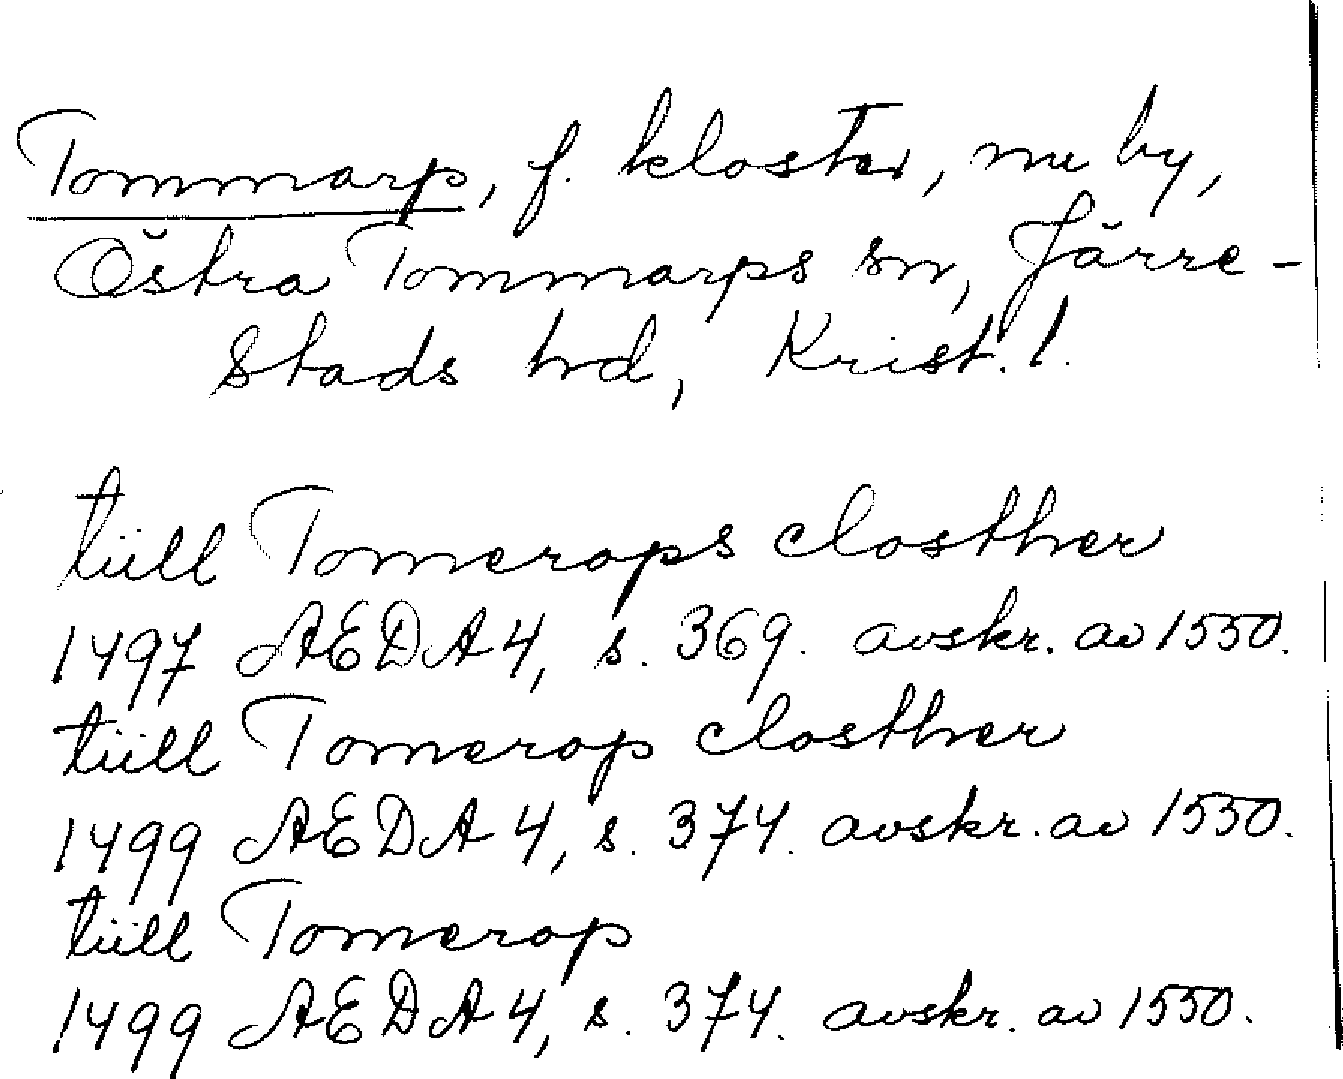 Tommarp, f. kloster, nu by,
Östra Tommarps sn, Järre-
stads hd, Krist. l.
tiill Tomerops closther
1497 AEDA 4, s. 369. avskr. av 1550.
tiill Tomerop closther
1499 AEDA 4, s. 374. avskr. av 1550.
tiill Tomerop
1499 AEDA 4, s. 374. avskr. av 1550.